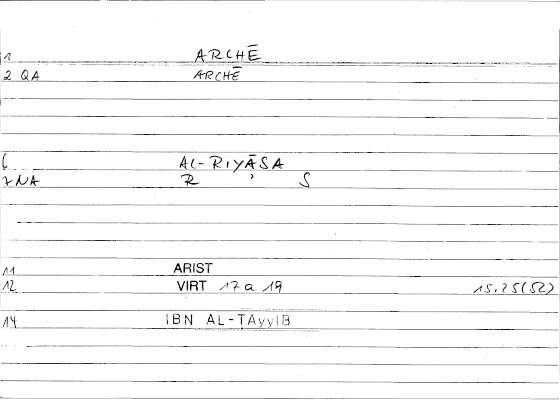 1 ARCHĒ
2 QA ARCHĒ
6 AL-RIYĀSA
7 NA R ʾ S
11 ARIST
12 VIRT 17a 19 15.25(52)
14 IBN AL-ṬAyyIB